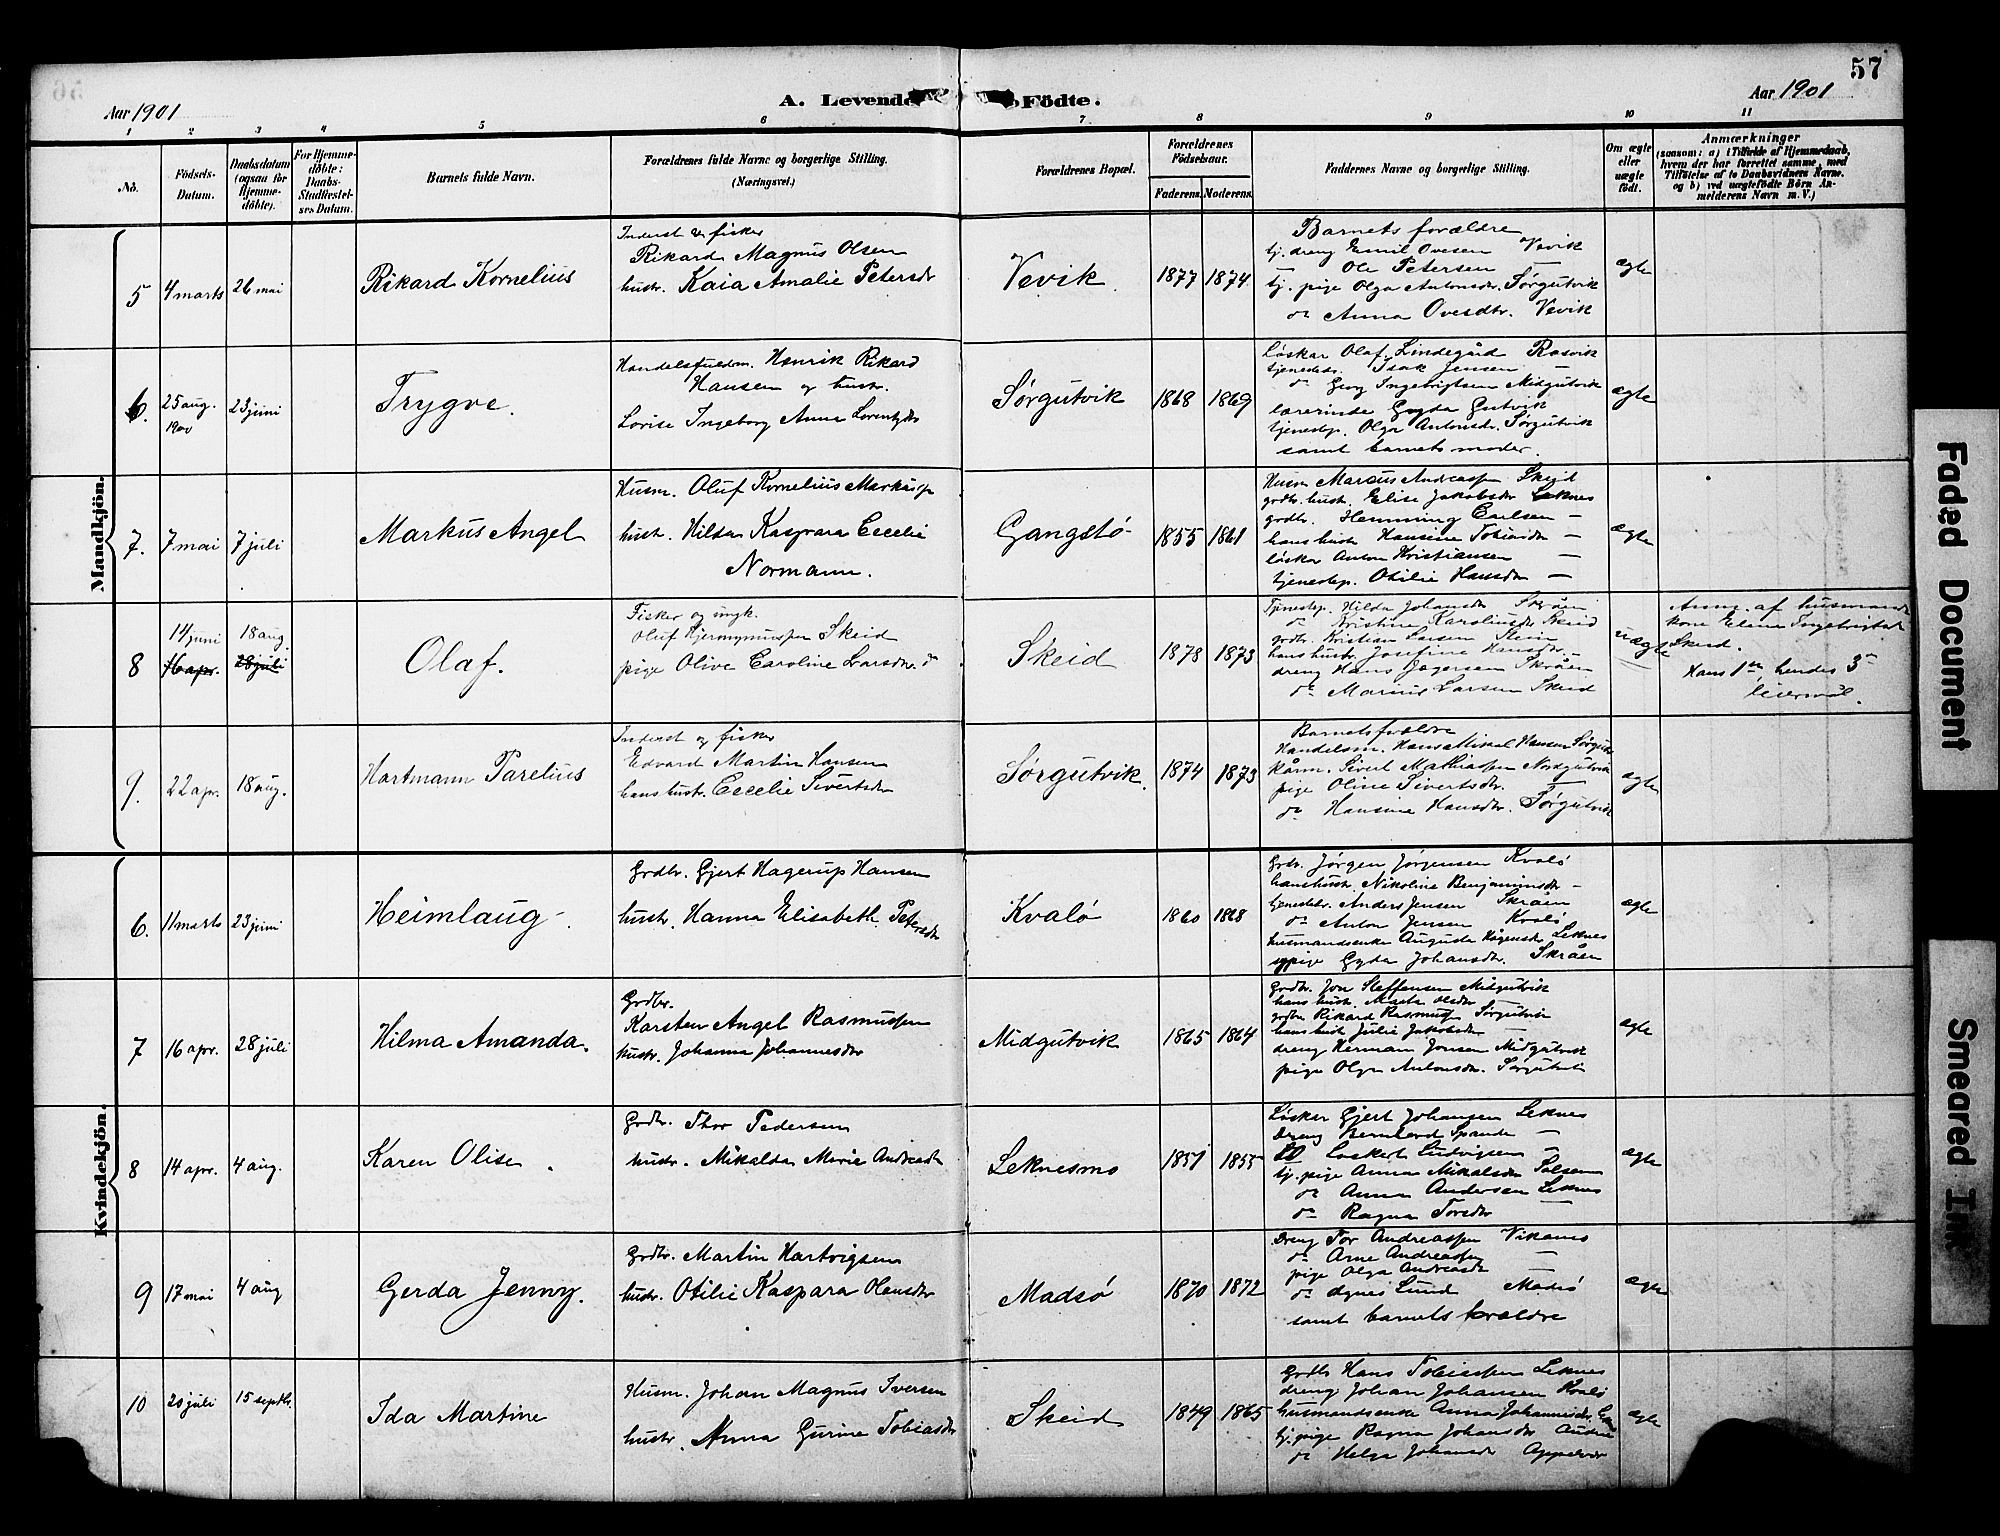 57
Aar 1901
A. Levende Födte.
Aar 1901
1 2 3 4 5 6 7 8 9 10 11
No.
Födsels-Datum.
Daabsdatum (ogsaa for Hjemme-döbte).
For Hjemme-döbte: Daabs-Stadfæstel-ses Datum.
Barnets fulde Navn.
Forældrenes fulde Navne og borgerlige Stilling.
(Næringsvei.)
Forældrenes Bopæl.
Forældrenes Födselsaar.
Faderens. Moderens.
Faddernes Navne og borgerlige Stilling.
Om ægte eller uægte födt.
Anmærkninger
(saasom: a) i Tilfælde af Hjemmedaab, hvem der har forrettet samme, med Tilföielse af to Daabsvidners Navne. og b) ved uægtefödte Börn An-melderens Navn m. V.)
Mandkjön.
5 4 marts 26 mai Rikard Kornelius
Inderst & fisker
Rikard Magnus Olsen
hustr. Kaia Amalie Petersdr
Vevik 1877 1874
Barnets forældre
tj. dreng Emil Ovesen Vevik
Ole Petersen —
tj. pige Olga Antonsdr. Sørgutvik
do Anna Ovesdtr. Vevik
ægte
6. 25 aug. 1900 23 juni Trygve.
Handelsfuldm. Henrik Rikard
Hansen og hustr.
Lovise Ingeborg Anna Lorentzdr
Sørgutvik 1868 1869
Løskar Olaf Lindegård Rasvik
tjenestedr. Isak Jensen —
do Georg Ingebrigtsen Midgutvik
lærerinde Gyda Gutvik
tjenestep. Olga Antonsdr. Sørgutvik
samt barnets moder.
ægte
7. 7 mai 7 juli Markus Angel
Husm. Oluf Kornelius Markussen
hustr. Hilda Kaspara Cecelie
Normann.
Gangstø 1855 1861
Husm Marcus Andreassen Skeid
grdbr. hustr. Elise Jakobsdr Leknes
grdbr. Henning Carlsen —
hans hustr Hansine Tobiasdr —
løskar Anton Kristiansen —
tjenestep. Otilie Hansdr —
ægte
8 14 juni 18 aug.
16 apr. 28 juli
Olaf.
Fisker og ungk.
Oluf Hjeronymussen Skeid
pige Olive Caroline Larsdtr. do
Skeid 1878 1873
Tjenestep. Hilda Johansdr Skråen
do Kristine Karoliusdr Skeid
grdbr. Kristian Larsen
hans hustr. Josefine Hansdtr. —
dreng Hans Jørgensen Skråen
do Marius Larsen Skeid
uægte
Anm. af husmands
kone Elena Ingebrigtsdr
Skeid.
Hans 1ste, hendes 3de
leiermål.
9. 22 apr. 18 aug. Hartmann Parelius
Inderst og fisker
Edvard Martin Hansen
hans hustr. Cecelie Sivertsdr
Sørgutvik 1874 1873
Barnets forældre
Handelsm. Hans Mikal Hansen Sørgutv
kårm. Sivert Mathiassen Nordgutvik
pige Oline Sivertsdr. —
do Hansine Hansdtr. Sørgutvik
ægte
Kvindekjön.
6. 11 marts 23 juni Heimlaug
Grdbr. Gjert Hagerup Hansen
hustr. Hanna Elisabeth Petersdr
Kvalø 1860 1868
Grdbr. Jørgen Jørgensen Kvalø
hans hustr. Nikoline Benjaminsdr —
tjenestedr. Anders Jensen Skråen
do Anton Jensen Kvalø
husmandsenke Augusta Hågensdr Leknes
sypige Gyda Johansdr. Skråen
ægte
7 16 apr. 28 juli Hilma Amanda.
Grdbr.
Karsten Angel Rasmussen
hustr. Johanna Johannesdr
Midgutvik 1865 1864
Grdbr. Jon Steffensen Midgutvik
hans hustr. Marta Olsdr —
grdbr Rikard Rasmuss Sørgutvik
hans hustr Julie Jakobsdr —
dreng Herman Jonsen Midgutvik
pige Olga Antonsdr. Sørgutvik
ægte
8 14 apr. 4 aug. Karen Olise
Grdbr. Thor Pedersen
hustr. Mikalda Marie Andreasdr
Leknesmo 1851 1855
Løskar Gjert Johansen Leknes
dreng Bernhard Spande —
do Laskert Ludvigsen —
tj. pige Anna Mikalsdr Solsem
do Anna Andersen Leknes
do Ragna Torsdtr —
ægte
9 17 mai 4 aug Gerda Jenny.
Grdbr. Martin Hartvigsen
hustr. Otilie Kaspara Hansdtr
Madsø 1870 1872
Dreng Tor Andreassen Viknes
do Arne Andreassen —
pige Olga Andreasdr —
do Agnes Lund Madsø
samt barnets forældre
ægte
10 20 juli 15 septbr. Ida Martine
Husm. Johan Magnus Iversen
hustr. Anna Gurine Tobiasdtr
Skeid 1849 1865
Grdbr Hans Tobiassen Leknes
dreng Johan Johansen Kvalø
husmandsenke Anna Johannesdr.
tj. pige Ragna Johansdr
do Helga Johansdr Appelvær
ægte
Faded Document
Smeared Ink